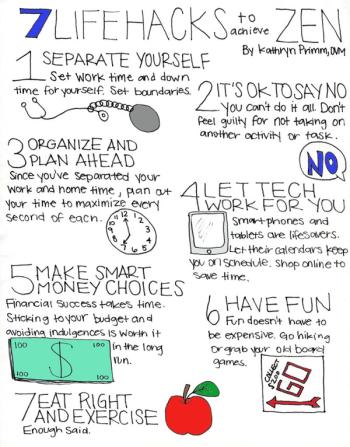 7 LIFE HACKS to achieve ZEN
By Kathryn Primm, DVM
1 SEPARATE YOURSELF
Set work time and down
time for yourself. Set boundaries.
2 IT'S OK TO SAY NO
You can't do it all. Don't
feel guilty for not taking on
another activity or task.
NO
3 ORGANIZE AND
PLAN AHEAD
Since you've separated your
work and home time, plan out
your time to maximize every
second of each.
4 LET TECH
WORK FOR YOU
Smartphones and
tablets are lifesavers.
Let their calendars keep
you on schedule. Shop online to
save time.
5 MAKE SMART
MONEY CHOICES
Financial success takes time.
Sticking to your budget and
avoiding indulgences is worth it
in the long
run.
100 100
$
100 100
6 HAVE FUN
Fun doesn't have to
be expensive. Go hiking
or grab your old board
games.
COLLECT
$200
GO
7 EAT RIGHT
AND EXERCISE
Enough said.